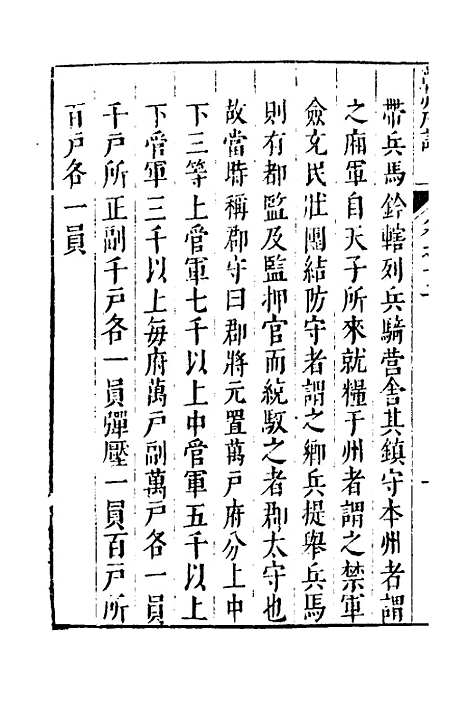 帶兵馬鈐轄列兵騎营舍其鎮守本州者謂
之廂軍自天子所來就糧于州者謂之禁軍
僉充民壯團結防守者謂之鄉兵提舉兵馬
則有都監及監押官而統馭之者郡太守也
故當時稱郡守曰郡將元置萬戸府分上中
下三等上管軍七千以上中管軍五千以上
下管軍三千以上每府萬戸副萬戸各一員
千戸所正副千戸各一員彈壓一員百戸所
百戸各一員